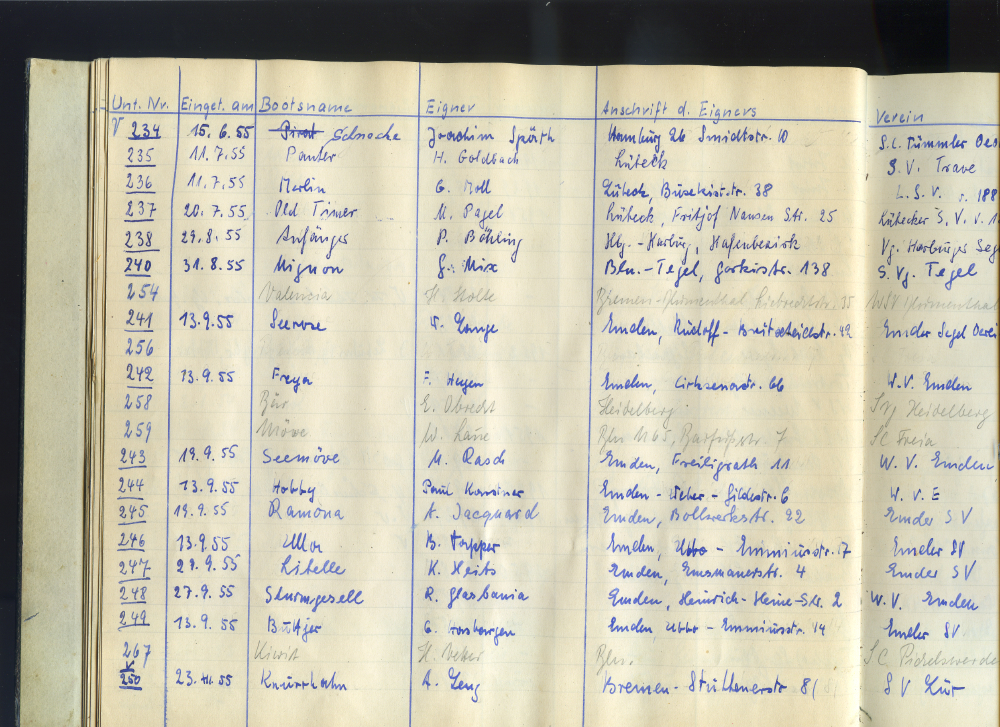 Unt. Nr. Einget. am Bootsname Eigner Anschrift d. Eigners Verein
V 234 15.6.55 Pirat Joachim Späth Hamburg 26 Smidtstr. 10 S.C. Tümmler
235 11.7.55 Panter H. Goldbach Lübeck S.V. Trave
236 11.7.55 Merlin G. Moll Lübeck, 38 L.S.V. v. 188
237 20.7.55 Old Timer M. Pagel Lübeck, Fritjof Nansen Str. 25 Lübecker S.V. v. 1
238 29.8.55 Anfänger P. Böhling Hbg.-Harburg, Hafenbezirk Vg. Harburger Seg
240 31.8.55 Mignon G. Mix Bln.-Tegel, Gorkistr. 138 S.Vg. Tegel
254 Valencia H. Nolte Bremen-Blumenthal 35 WSV Blumenthal
241 13.9.55 Seerose Lange Emden, Rudolf-Breitscheidstr. 42 Emder Segel Verei
256
242 13.9.55 Freya F. Heyen Emden, Cirksenastr. 66 W.V. Emden
258 Bär E. Obrecht Heidelberg SVg Heidelberg
259 Möwe W. Bln N65, Barfußstr. 7 SC Freia
243 19.9.55 Seemöve M. Rasch Emden, Freiligrath 11 W.V. Emden
244 13.9.55 Hobby Paul Emden-Weber-Gildestr. 6 W.V.E
245 19.9.55 Ramona A. Jacquard Emden, Bollwerkstr. 22 Emder SV
246 13.9.55 B. Topper Emden, Ubbo-Emmiusstr. 7 Emder SV
247 29.9.55 Libelle K. Heits Emden, Emsmauerstr. 4 Emder SV
248 27.9.55 Sturmgesell R. Glasbania Emden, Heinrich-Heine-Str. 2 W.V. Emden
249 13.9.55 Buttjer G. Emden, Ubbo-Emmiusstr. 14 Emder SV
267 Kiwit H. Bln. SC Pichelswerde
250 23. 55 Knurrhahn A. Leng Bremen- 8 SV